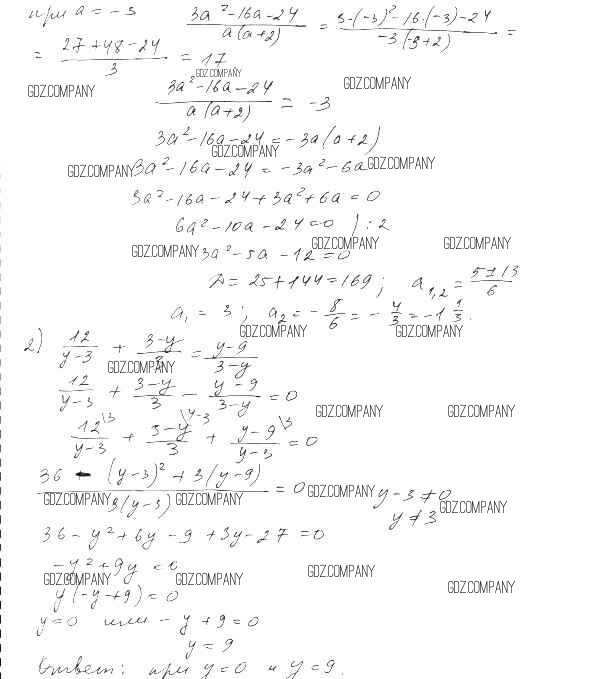 при a = -3 (3a²-16a-24)/(a(a+2)) = (3·(-3)²-16·(-3)-24)/(-3(-3+2)) =
= (27+48-24)/3 = 17
GDZ.COMPANY
GDZ.COMPANY GDZ.COMPANY
(3a²-16a-24)/(a(a+2)) = -3
3a²-16a-24 = -3a(a+2)
GDZ.COMPANY
GDZ.COMPANY 3a²-16a-24 = -3a²-6a GDZ.COMPANY
3a²-16a-24+3a²+6a = 0
6a²-10a-24=0 ) :2
GDZ.COMPANY GDZ.COMPANY GDZ.COMPANY
3a²-5a-12=0
D = 25+144=169; a₁,₂ = (5±13)/6
a₁ = 3; a₂ = -8/6 = -4/3 = -1 1/3.
GDZ.COMPANY GDZ.COMPANY
2) 12/(y-3) + (3-y)/3 = (y-9)/(3-y)
GDZ.COMPANY
12/(y-3) + (3-y)/3 - (y-9)/(3-y) = 0
GDZ.COMPANY GDZ.COMPANY
12\3/(y-3) + (3-y)\y-3/3 + (y-9)\3/(y-3) = 0
(36 - (y-3)² + 3(y-9))/(3(y-3)) = 0 y-3≠0
GDZ.COMPANY GDZ.COMPANY GDZ.COMPANY GDZ.COMPANY
y≠3
36-y²+6y-9+3y-27=0
-y²+9y=0
GDZ.COMPANY GDZ.COMPANY GDZ.COMPANY GDZ.COMPANY
y(-y+9)=0
y=0 или -y+9=0
y=9
Ответ: при y=0 и y=9.